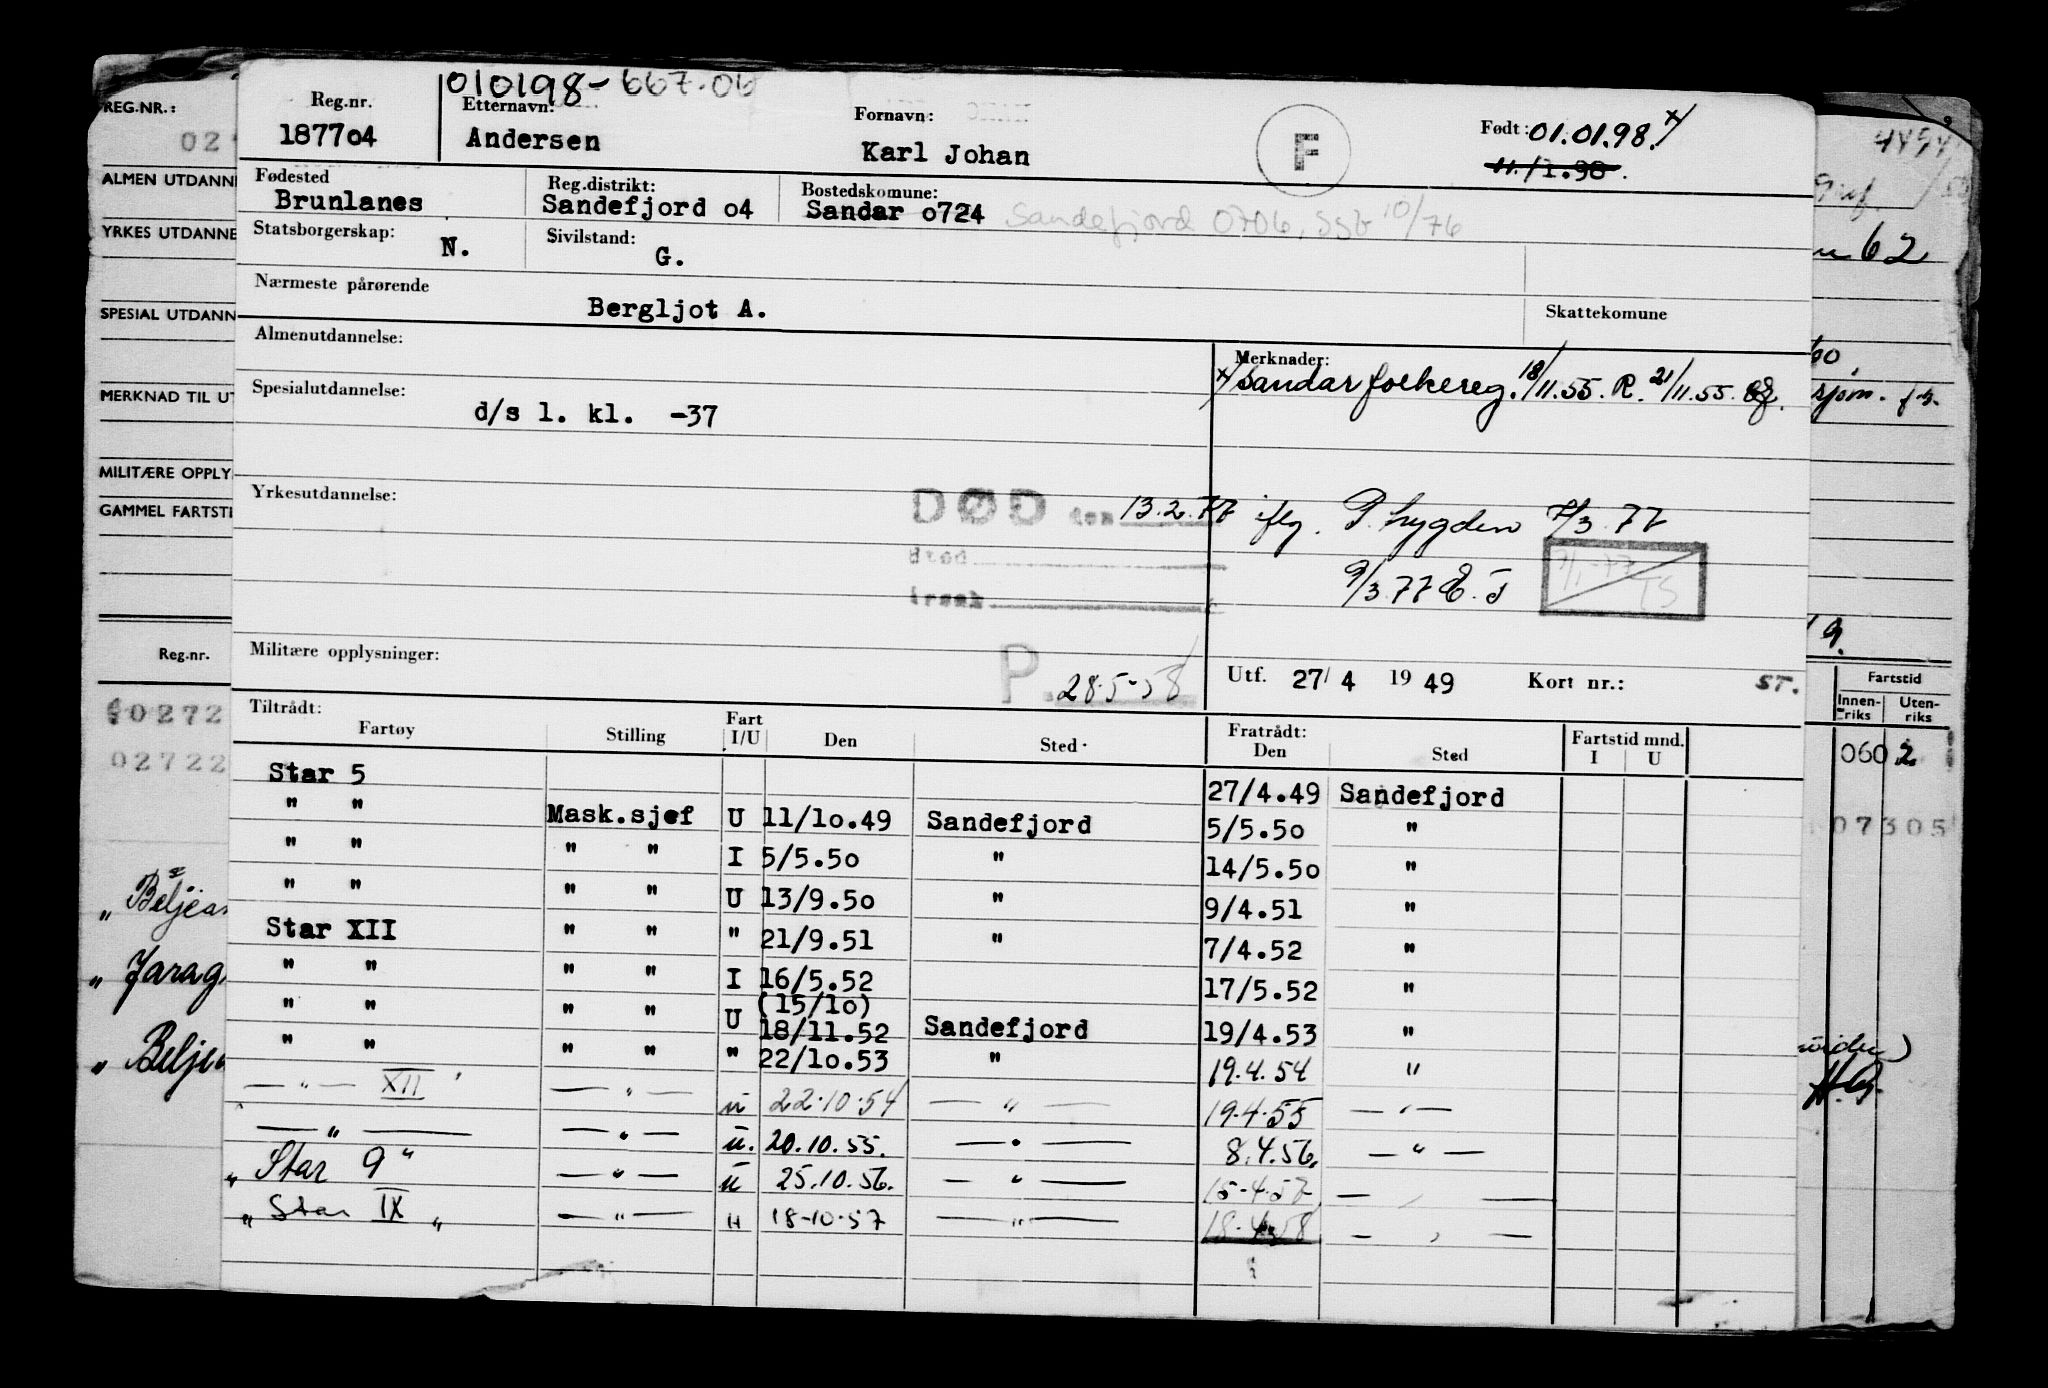 010198-667.06
Reg.nr. 187704
Etternavn: Andersen
Fornavn: Karl Johan
F
Født: 01.01.98. x/
11./1.98.
Fødested Brunlanes
Reg.distrikt: Sandefjord o4
Bostedskomune: Sandar o724 Sandefjord 0706, SSB 10/76
Statsborgerskap: N.
Sivilstand: G.
Nærmeste pårørende Bergljot A.
Skattekomune
Almenutdannelse:
Merknader:
x/ Sandar folkereg. 18/11.55. R. 21/11.55.
Spesialutdannelse: d/s l. kl. -37
Yrkesutdannelse:
DØD den 13.2.77 iflg. P. Lygden 7/3.77
Sted
Årsak
9/3.77 E.T
7/1-77 TS
Militære opplysninger:
P. 28.5-58
Utf. 27/ 4 19 49 Kort nr.: ST.
Tiltrådt: Fratrådt: Fartstid mnd.
Fartøy Stilling Fart I/U Den Sted Den Sted I U
Star 5 27/4.49 Sandefjord
" " Mask.sjef U 11/1o.49 Sandefjord 5/5.5o "
" " " " I 5/5.5o " 14/5.5o "
" " " " U 13/9.5o " 9/4.51 "
Star XII " " " 21/9.51 " 7/4.52 "
" " " " I 16/5.52 17/5.52 "
" " " " U (15/1o) 18/11.52 Sandefjord 19/4.53 "
" " " " " 22/1o.53 " 19.4.54 "
— " — XII — " — u 22.10.54 — " — 19.4.55 — " —
— " — — " — u. 20.10.55. — " — 8.4.56. — " —
" Star 9 " — " — u 25.10.56. — " — 15-4.57 — " —
" Star IX " — " — u 18-10.57 — " — 18-4.58 — " —
REG.NR.:
02
ALMEN UTDANN
YRKES UTDANNE
SPESIAL UTDANN
MERKNAD TIL UT
MILITÆRE OPPLY
GAMMEL FARTSTI
Reg.nr.
60272
02722
" Beljean
" Jarag
" Belje
62
sjøm. fr.
9.
Fartstid
Innen-riks Uten-riks
060 2
07305